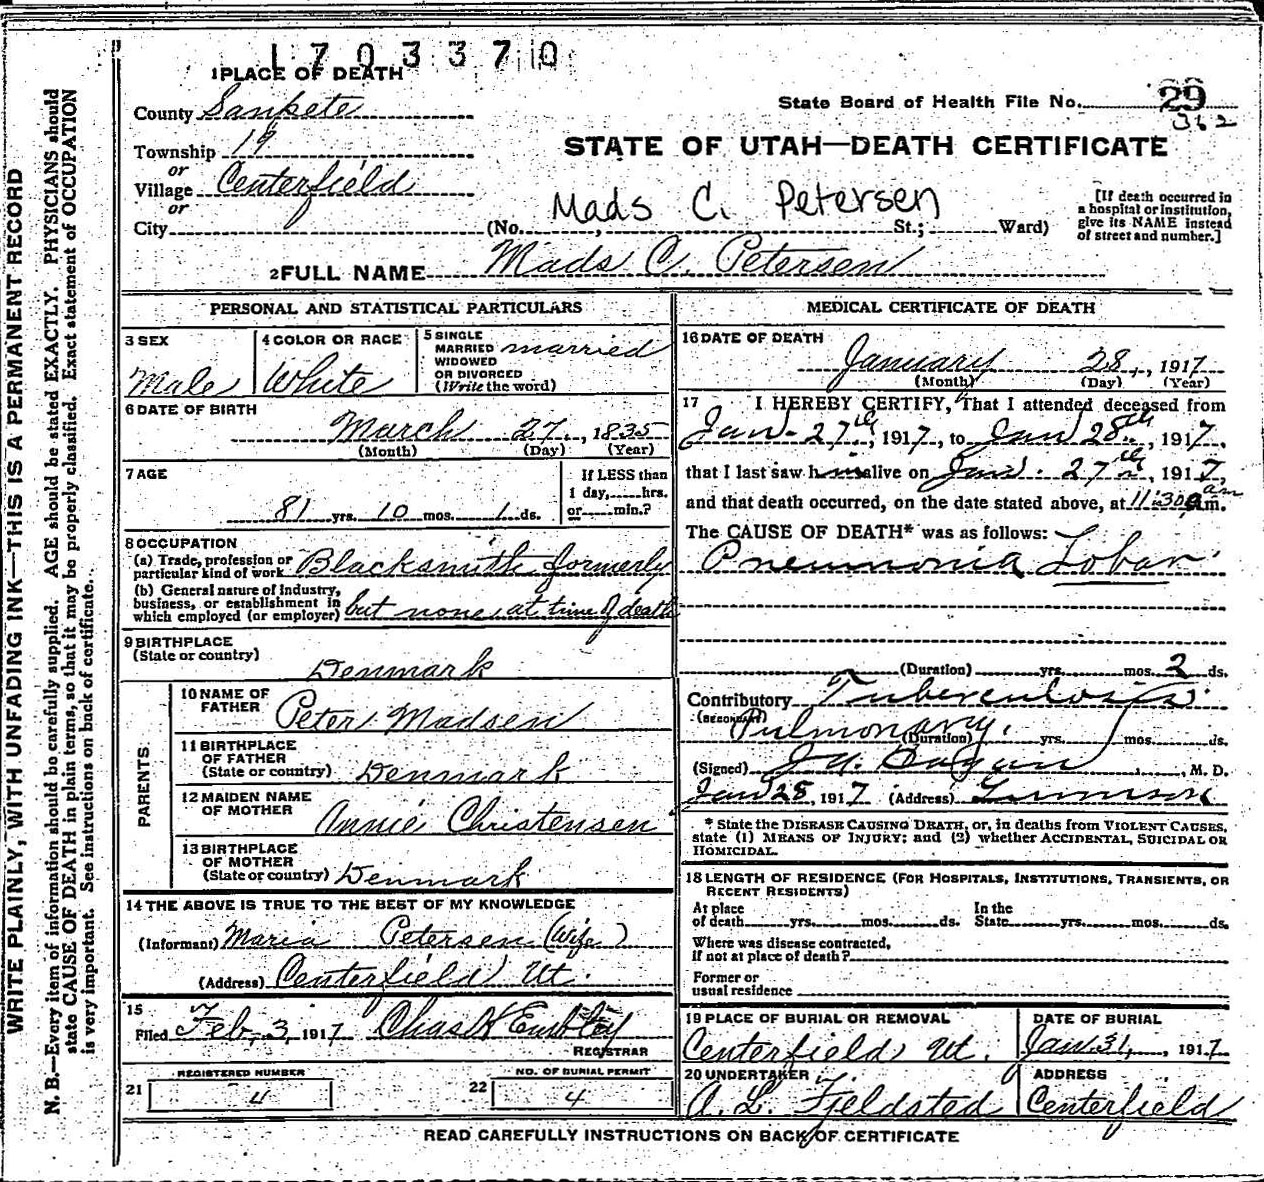 1703370
1 PLACE OF DEATH
County Sanpete
State Board of Health File No. 29
362
Township 19
STATE OF UTAH—DEATH CERTIFICATE
or
Village Centerfield
or
Mads C. Petersen
[If death occurred in
a hospital or institution,
give its NAME instead
of street and number.]
City (No. , St.; Ward)
2 FULL NAME Mads C. Petersen
PERSONAL AND STATISTICAL PARTICULARS
3 SEX
Male
4 COLOR OR RACE
White
5 SINGLE
MARRIED married
WIDOWED
OR DIVORCED
(Write the word)
6 DATE OF BIRTH
March 27, 1835
(Month) (Day) (Year)
7 AGE
81 yrs. 10 mos. 1 ds.
If LESS than
1 day, hrs.
or min.?
8 OCCUPATION
(a) Trade, profession or
particular kind of work Blacksmith formerly
(b) General nature of industry,
business, or establishment in
which employed (or employer) but none at time of death
9 BIRTHPLACE
(State or country)
Denmark
PARENTS
10 NAME OF
FATHER
Peter Madsen
11 BIRTHPLACE
OF FATHER
(State or country) Denmark
12 MAIDEN NAME
OF MOTHER
Annie Christensen
13 BIRTHPLACE
OF MOTHER
(State or country) Denmark
14 THE ABOVE IS TRUE TO THE BEST OF MY KNOWLEDGE
(Informant) Maria Petersen (Wife)
(Address) Centerfield Ut.
15
Filed Feb. 3, 1917 Chas K Embley
REGISTRAR
21 REGISTERED NUMBER
4
22 NO. OF BURIAL PERMIT
4
MEDICAL CERTIFICATE OF DEATH
16 DATE OF DEATH
January 28, 1917
(Month) (Day) (Year)
17 I HEREBY CERTIFY, That I attended deceased from
Jan. 27th, 1917, to Jan 28th, 1917,
that I last saw him alive on Jan. 27th, 1917,
and that death occurred, on the date stated above, at 11:30 am.
The CAUSE OF DEATH* was as follows:
Pneumonia Lobar
(Duration) yrs. mos. 2 ds.
Contributory Tuberculosis
(SECONDARY) Pulmonary.
(Duration) yrs. mos. ds.
(Signed) , M. D.
Jan 28, 1917 (Address)
* State the DISEASE CAUSING DEATH, or, in deaths from VIOLENT CAUSES,
state (1) MEANS OF INJURY; and (2) whether ACCIDENTAL, SUICIDAL OR
HOMICIDAL.
18 LENGTH OF RESIDENCE (FOR HOSPITALS, INSTITUTIONS, TRANSIENTS, OR
RECENT RESIDENTS)
At place
of death yrs. mos. ds.
In the
State yrs. mos. ds.
Where was disease contracted,
if not at place of death?
Former or
usual residence
19 PLACE OF BURIAL OR REMOVAL
Centerfield Ut.
DATE OF BURIAL
Jan. 31, 1917
20 UNDERTAKER
A. L. Fjeldsted
ADDRESS
Centerfield
READ CAREFULLY INSTRUCTIONS ON BACK OF CERTIFICATE
WRITE PLAINLY, WITH UNFADING INK—THIS IS A PERMANENT RECORD
N. B.—Every item of information should be carefully supplied. AGE should be stated EXACTLY. PHYSICIANS should
state CAUSE OF DEATH in plain terms, so that it may be properly classified. Exact statement of OCCUPATION
is very important. See instructions on back of certificate.